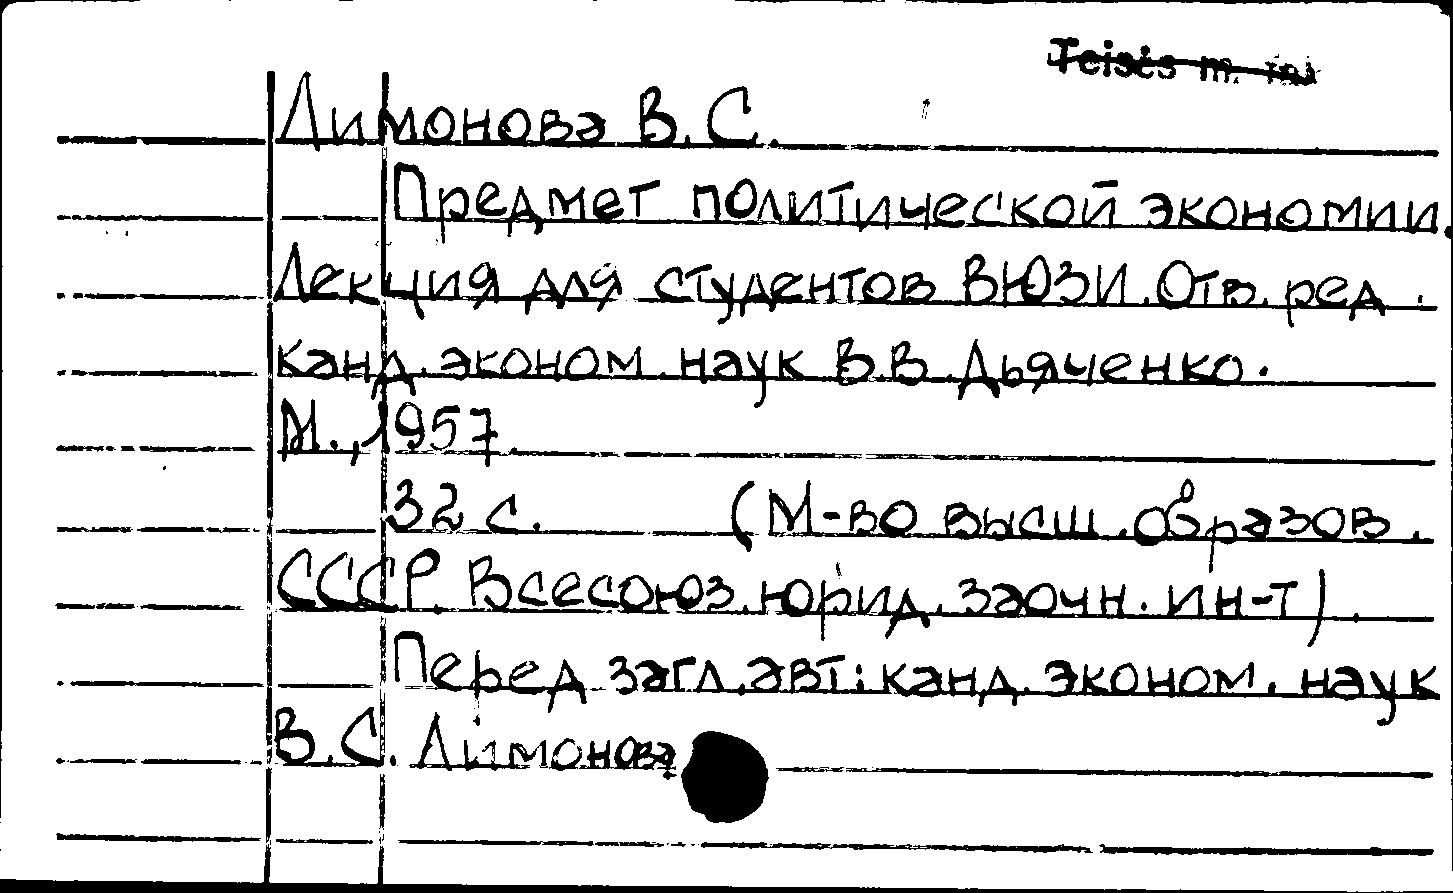 Teisės m.
Лимонова В. С.
Предмет политической экономии.
Лекция для студентов ВЮЗИ. Отв. ред.
канд. эконом. наук В.В. Дьяченко.
М., 1957.
32 с. (М-во высш. образов.
СССР. Всесоюз. юрид. заочн. ин-т).
Перед загл. авт: канд. эконом. наук
В.С. Лимонова